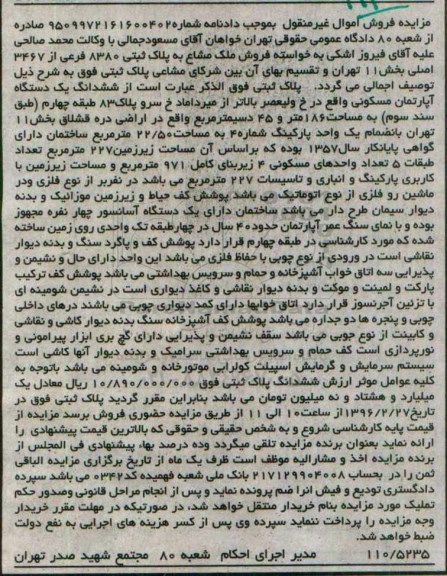 مزایده فروش اموال غیرمنقول بموجب دادنامه شماره ۹۵۰۹۹۷۲۱۶۱۶۰۰۴۰۲ صادره
از شعبه ۸۰ دادگاه عمومی حقوقی تهران خواهان آقای مسعودجمالی با وکالت محمد صالحی
علیه آقای فیروز اشکی به خواسته فروش ملک مشاع به پلاک ثبتی ۸۳۸۰ فرعی از ۳۴۶۷
اصلی بخش۱۱ تهران و تقسیم بهای آن بین شرکای مشاعی پلاک ثبتی فوق به شرح ذیل
توصیف اجمالی می گردد. پلاک ثبتی فوق الذکر عبارت است از ششدانگ یک دستگاه
آپارتمان مسکونی واقع در خ ولیعصر بالاتر از میرداماد خ سرو پلاک۸۳ طبقه چهارم (طبق
سند سوم) به مساحت۱۸۶متر و ۴۵ دسیمترمربع واقع در اراضی دره قشلاق بخش۱۱
تهران بانضمام یک واحد پارکینگ شماره۴ به مساحت۲۲/۵۰ مترمربع ساختمان دارای
گواهی پایانکار سال۱۳۵۷ بوده که براساس آن مساحت زیرزمین۲۲۷ مترمربع تعداد
طبقات ۵ تعداد واحدهای مسکونی ۴ زیربنای کامل ۹۷۱ مترمربع و مساحت زیرزمین با
کاربری پارکینگ و انباری و تاسیسات ۲۲۷ مترمربع می باشد در نفربر از نوع فلزی ودر
ماشین رو فلزی از نوع اتوماتیک می باشد پوشش کف حیاط و زیرزمین موزائیک و بدنه
دیوار سیمان طرح دار می باشد ساختمان دارای یک دستگاه آسانسور چهار نفره مجهوز
بوده و با نمای سنگ عمر آپارتمان حدود۴۰ سال در چهارطبقه تک واحدی روی زمین ساخته
شده که مورد کارشناسی در طبقه چهارم قرار دارد پوشش کف و پاگرد سنگ و بدنه دیوار
نقاشی است در ورودی از نوع چوبی با حفاظ فلزی می باشد این واحد دارای حال و نشیمن و
پذیرایی سه اتاق خواب آشپزخانه و حمام و سرویس بهداشتی می باشد پوشش کف ترکیب
پارکت و لمینت و موکت و بدنه دیوار نقاشی و کاغذ دیواری است در نشیمن شومینه ای
با تزئین آجرنسوز قرار دارد اتاق خوابها دارای کمد دیواری چوبی می باشند درهای داخلی
چوبی و پنجره ها دو جداره می باشد پوشش کف آشپزخانه سنگ بدنه دیوار کاشی و نقاشی
و کابینت از نوع چوبی می باشد سقف نشیمن و پذیرایی دارای گچ بری ابزار پیرامونی و
نورپردازی است کف حمام و سرویس بهداشتی سرامیک و بدنه دیوار آنها کاشی است
سیستم سرمایش و گرمایش اسپیلت کولرابی موتورخانه و شومینه می باشد باتوجه به
کلیه عوامل موثر ارزش ششدانگ پلاک ثبتی فوق ۱۰/۸۹۰/۰۰۰/۰۰۰ ریال معادل یک
میلیارد و هشتاد و نه میلیون تومان می باشد بنابراین مقرر گردید پلاک ثبتی فوق در
تاریخ۱۳۹۶/۲/۲۷ از ساعت۱۰ الی ۱۱ از طریق مزایده حضوری فروش برسد مزایده از
قیمت پایه کارشناسی شروع و به شخص حقیقی و حقوقی که بالاترین قیمت پیشنهادی را
ارائه نماید بعنوان برنده مزایده تلقی میگردد وده درصد بهاء پیشنهادی فی المجلس از
برنده مزایده اخذ و مشارالیه موظف است ظرف یک ماه از تاریخ برگزاری مزایده الباقی
ثمن را در بحساب ۲۱۷۱۲۹۹۰۴۰۰۸ بانک ملی شعبه فهمیده کد۰۳۴۲ می باشد سپرده
دادگستری تودیع و فیش انرا ضم پرونده نماید و پس از انجام مراحل قانونی وصدور حکم
تملیک مورد مزایده بنام خریدار منتقل خواهد شد، در صورتیکه در مهلت مقرر خریدار
وجه مزایده را پرداخت ننماید سپرده وی پس از کسر هزینه های اجرایی به نفع دولت
ضبط خواهد شد.
۱۱۰/۵۲۳۵ مدیر اجرای احکام شعبه ۸۰ مجتمع شهید صدر تهران